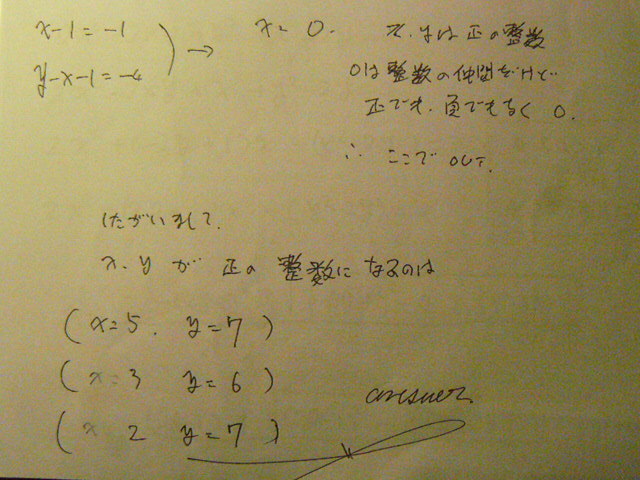 x-1=-1
y-x-1=-4
→ x=0.
x,yは正の整数
0は整数の仲間だけど
正でも、負でもなく 0.
∴ ここで OUT.
したがいまして、
x、y が 正の 整数に なるのは
(x=5. y=7)
(x=3 y=6)
(x 2 y=7)
answer.